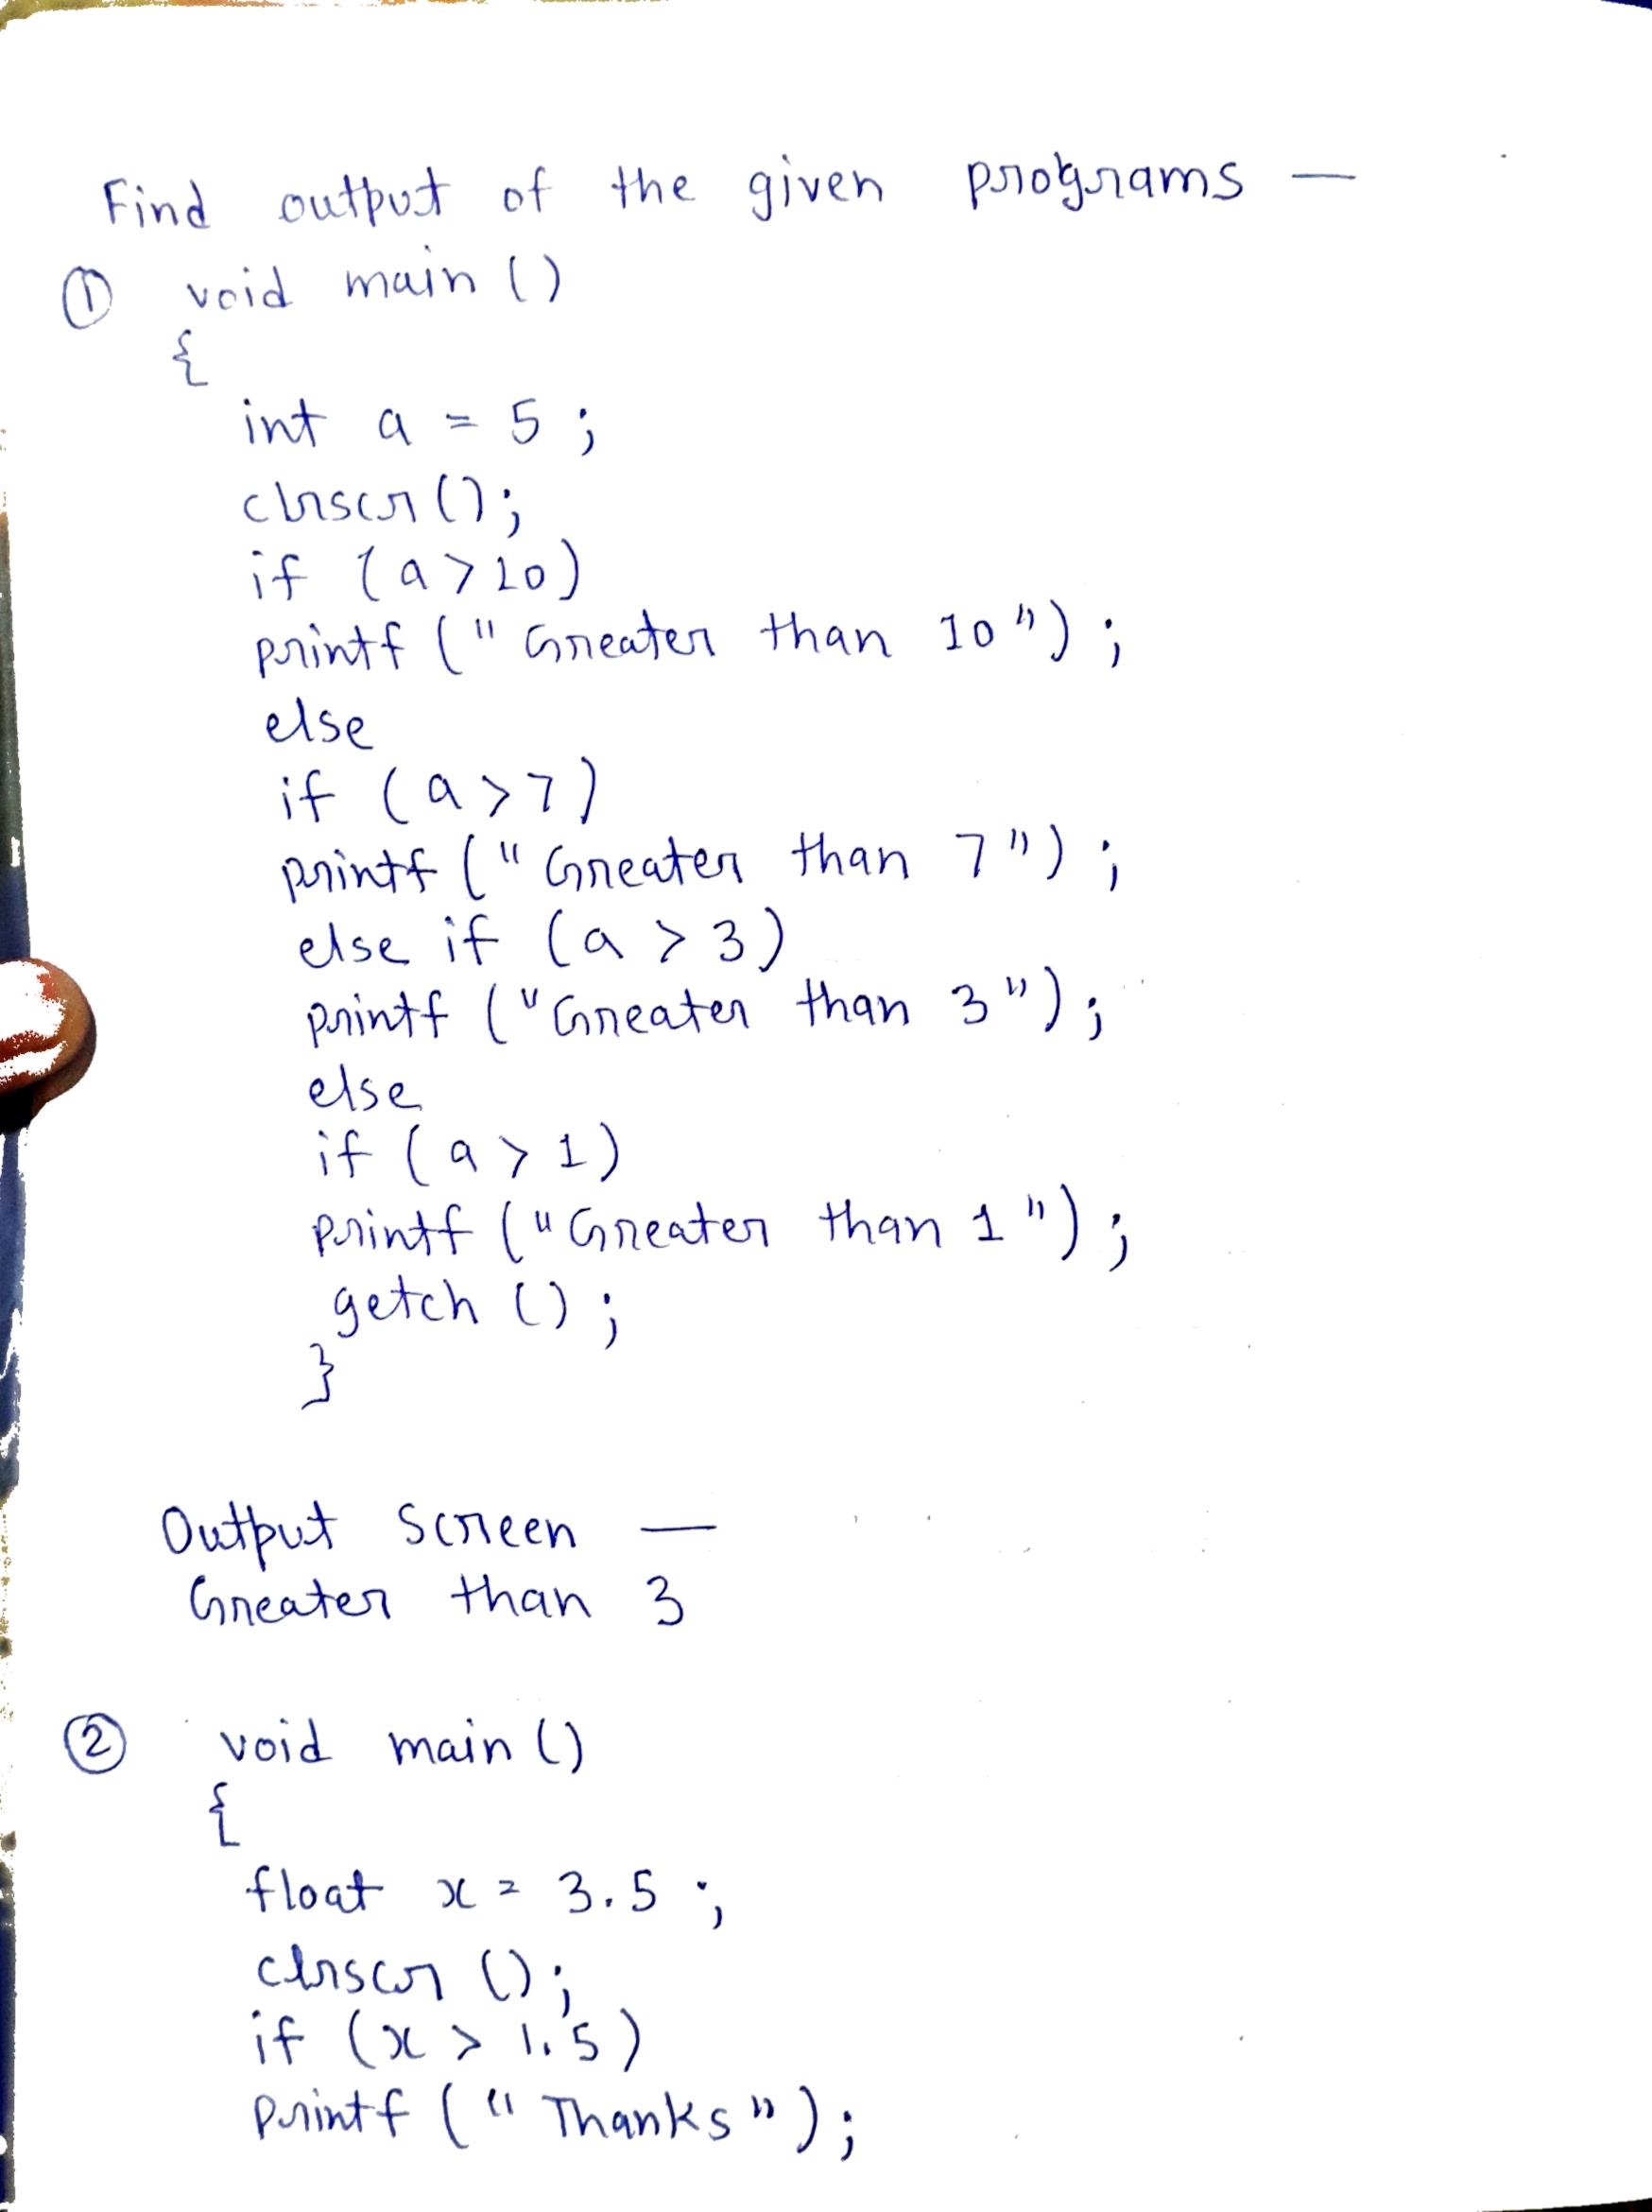 Find output of the given programs —
① void main ()
{
int a = 5 ;
clrscr ();
if (a > 10)
printf (" Greater than 10 ") ;
else
if (a > 7)
printf (" Greater than 7 ") ;
else if (a > 3)
printf (" Greater than 3 ") ;
else
if (a > 1)
printf (" Greater than 1 ") ;
getch () ;
}
Output Screen —
Greater than 3
② void main ()
{
float x = 3.5 ;
clrscr () ;
if (x > 1.5)
printf (" Thanks ") ;